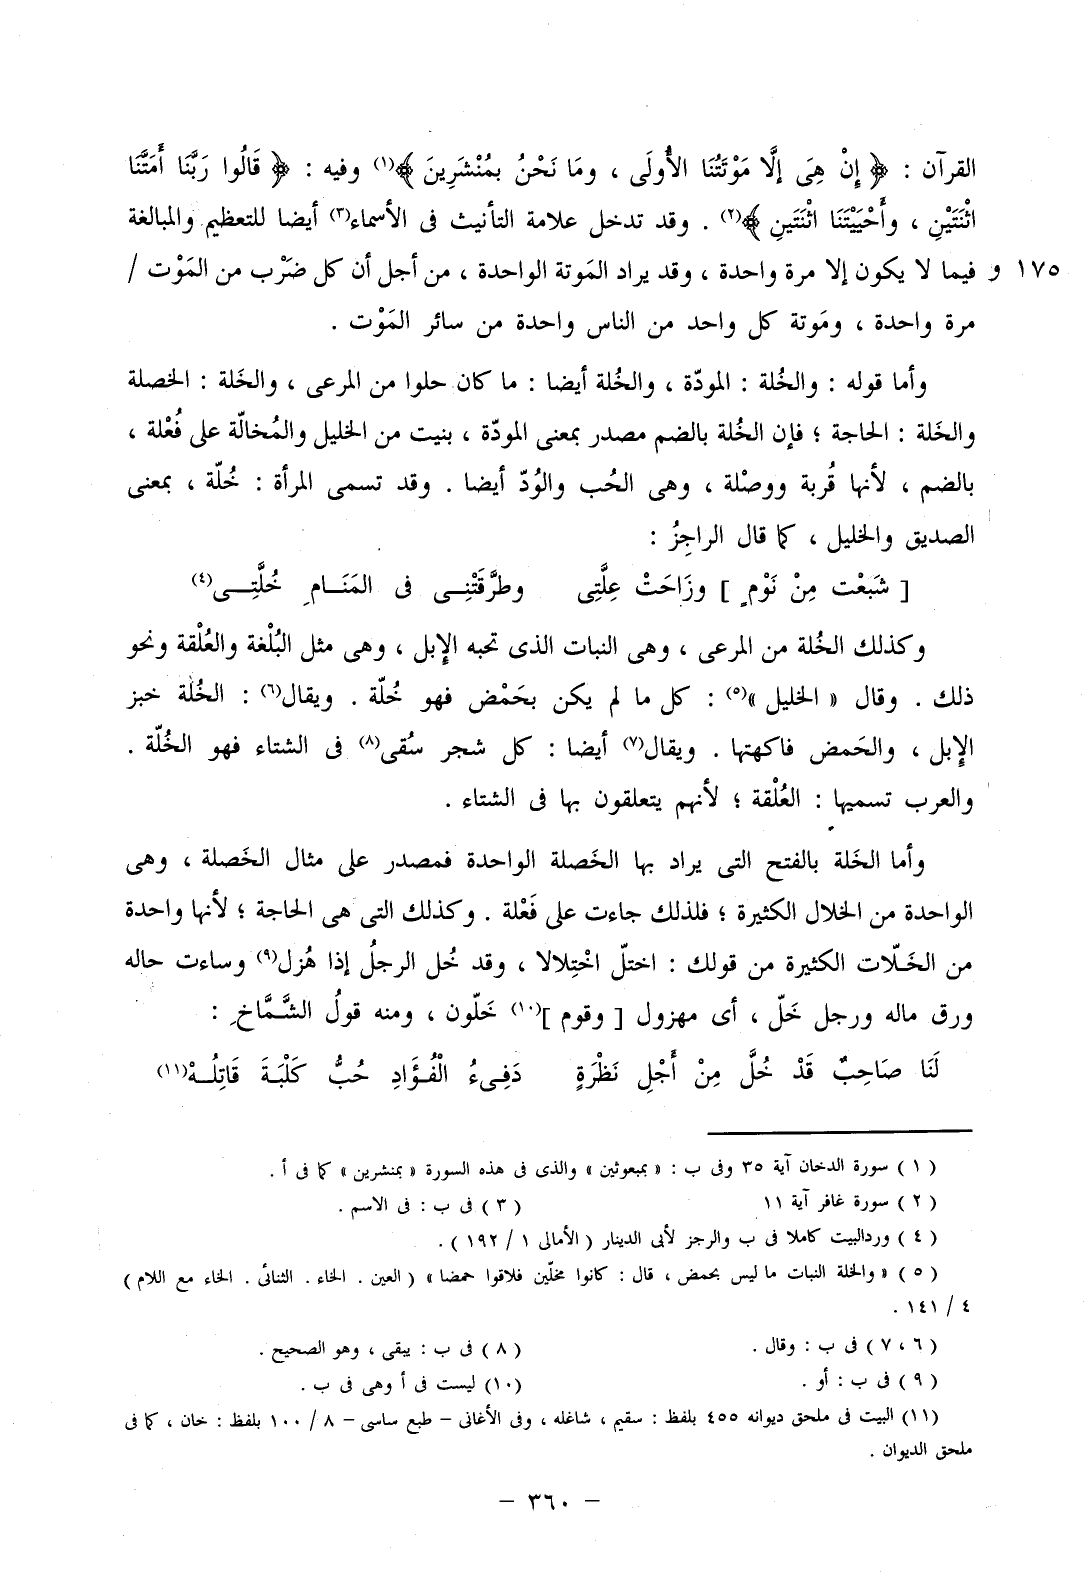 القرآن : ﴿ إِنْ هِىَ إلَّا مَوْتَتُنَا الأُولَى ، ومَا نَحْنُ بمُنْشَرِينَ ﴾(١) وفيه : ﴿ قَالُوا رَبَّنَا أَمَتَّنَا
اثْنَتَيْنِ ، وأَحْيَيْتَنَا اثْنَتَينِ ﴾(٢) . وقد تدخل علامة التأنيث فى الأسماء(٣) أيضا للتعظيم والمبالغة
١٧٥ و فيما لا يكون إلا مرة واحدة ، وقد يراد المَوتة الواحدة ، من أجل أن كل ضَرْب من المَوْت /
مرة واحدة ، ومَوتة كل واحد من الناس واحدة من سائر المَوْت .
وأما قوله : والخُلة : المودّة ، والخُلة أيضا : ما كان حلوا من المرعى ، والخَلة : الخصلة
والخَلة : الحاجة ؛ فإن الخُلة بالضم مصدر بمعنى المودّة ، بنيت من الخليل والمُخالّة على فُعْلة ،
بالضم ، لأنها قُربة ووصْلة ، وهى الحُب والوُدّ أيضا . وقد تسمى المرأة : خُلّة ، بمعنى
الصديق والخليل ، كما قال الراجِزُ :
[ شَبَعْت مِنْ نَوْمٍ ] وزَاحَتْ عِلَّتِى وطرَّقَتْنِــى فى المَنَــامِ خُلَّتِــى(٤)
وكذلك الخُلة من المرعى ، وهى النبات الذى تحبه الإِبل ، وهى مثل البُلْغة والعُلْقة ونحو
ذلك . وقال « الخليل »(٥) : كل ما لم يكن بحَمْض فهو خُلّة . ويقال(٦) : الخُلة خبز
الإِبل ، والحَمض فاكهتها . ويقال(٧) أيضا : كل شجر سُقى(٨) فى الشتاء فهو الخُلّة .
والعرب تسميها : العُلْقة ؛ لأنهم يتعلقون بها فى الشتاء .
وأما الخَلة بالفتح التى يراد بها الخَصلة الواحدة فمصدر على مثال الخَصلة ، وهى
الواحدة من الخلال الكثيرة ؛ فلذلك جاءت على فَعْلة . وكذلك التى هى الحاجة ؛ لأنها واحدة
من الخَـلّات الكثيرة من قولك : اختلّ اخْتِلالا ، وقد خُل الرجلُ إذا هُزل(٩) وساءت حاله
ورق ماله ورجل خَلّ ، أى مهزول [ وقوم ](١٠) خَلّون ، ومنه قولُ الشَّـمَّاخِ :
لَنَا صَاحِبٌ قَدْ خُلَّ مِنْ أَجْلِ نَظْرَةٍ دَفِىءُ الْفُـؤَادِ حُبُّ كَلْبَةَ قَاتِلُـهْ(١١)
( ١ ) سورة الدخان آية ٣٥ وفى ب : « بمبعوثين » والذى فى هذه السورة « بمنشرين » كما فى أ .
( ٢ ) سورة غافر آية ١١ ( ٣ ) فى ب : فى الاسم .
( ٤ ) وردالبيت كاملا فى ب والرجز لأبى الدينار ( الأمالى ١ / ١٩٢ ) .
( ٥ ) « والخلة النبات ما ليس بحمض ، قال : كانوا مخلّين فلاقوا حمضا » ( العين . الخاء . الثنائى . الخاء مع اللام )
٤ / ١٤١ .
( ٦ ، ٧ ) فى ب : وقال . ( ٨ ) فى ب : يبقى ، وهو الصحيح .
( ٩ ) فى ب : أو . (١٠) ليست فى أ وهى فى ب .
(١١) البيت فى ملحق ديوانه ٤٥٥ بلفظ : سقيم ، شاغله ، وفى الأغانى – طبع ساسى – ٨ / ١٠٠ بلفظ : خان ، كما فى
ملحق الديوان .
– ٣٦٠ –